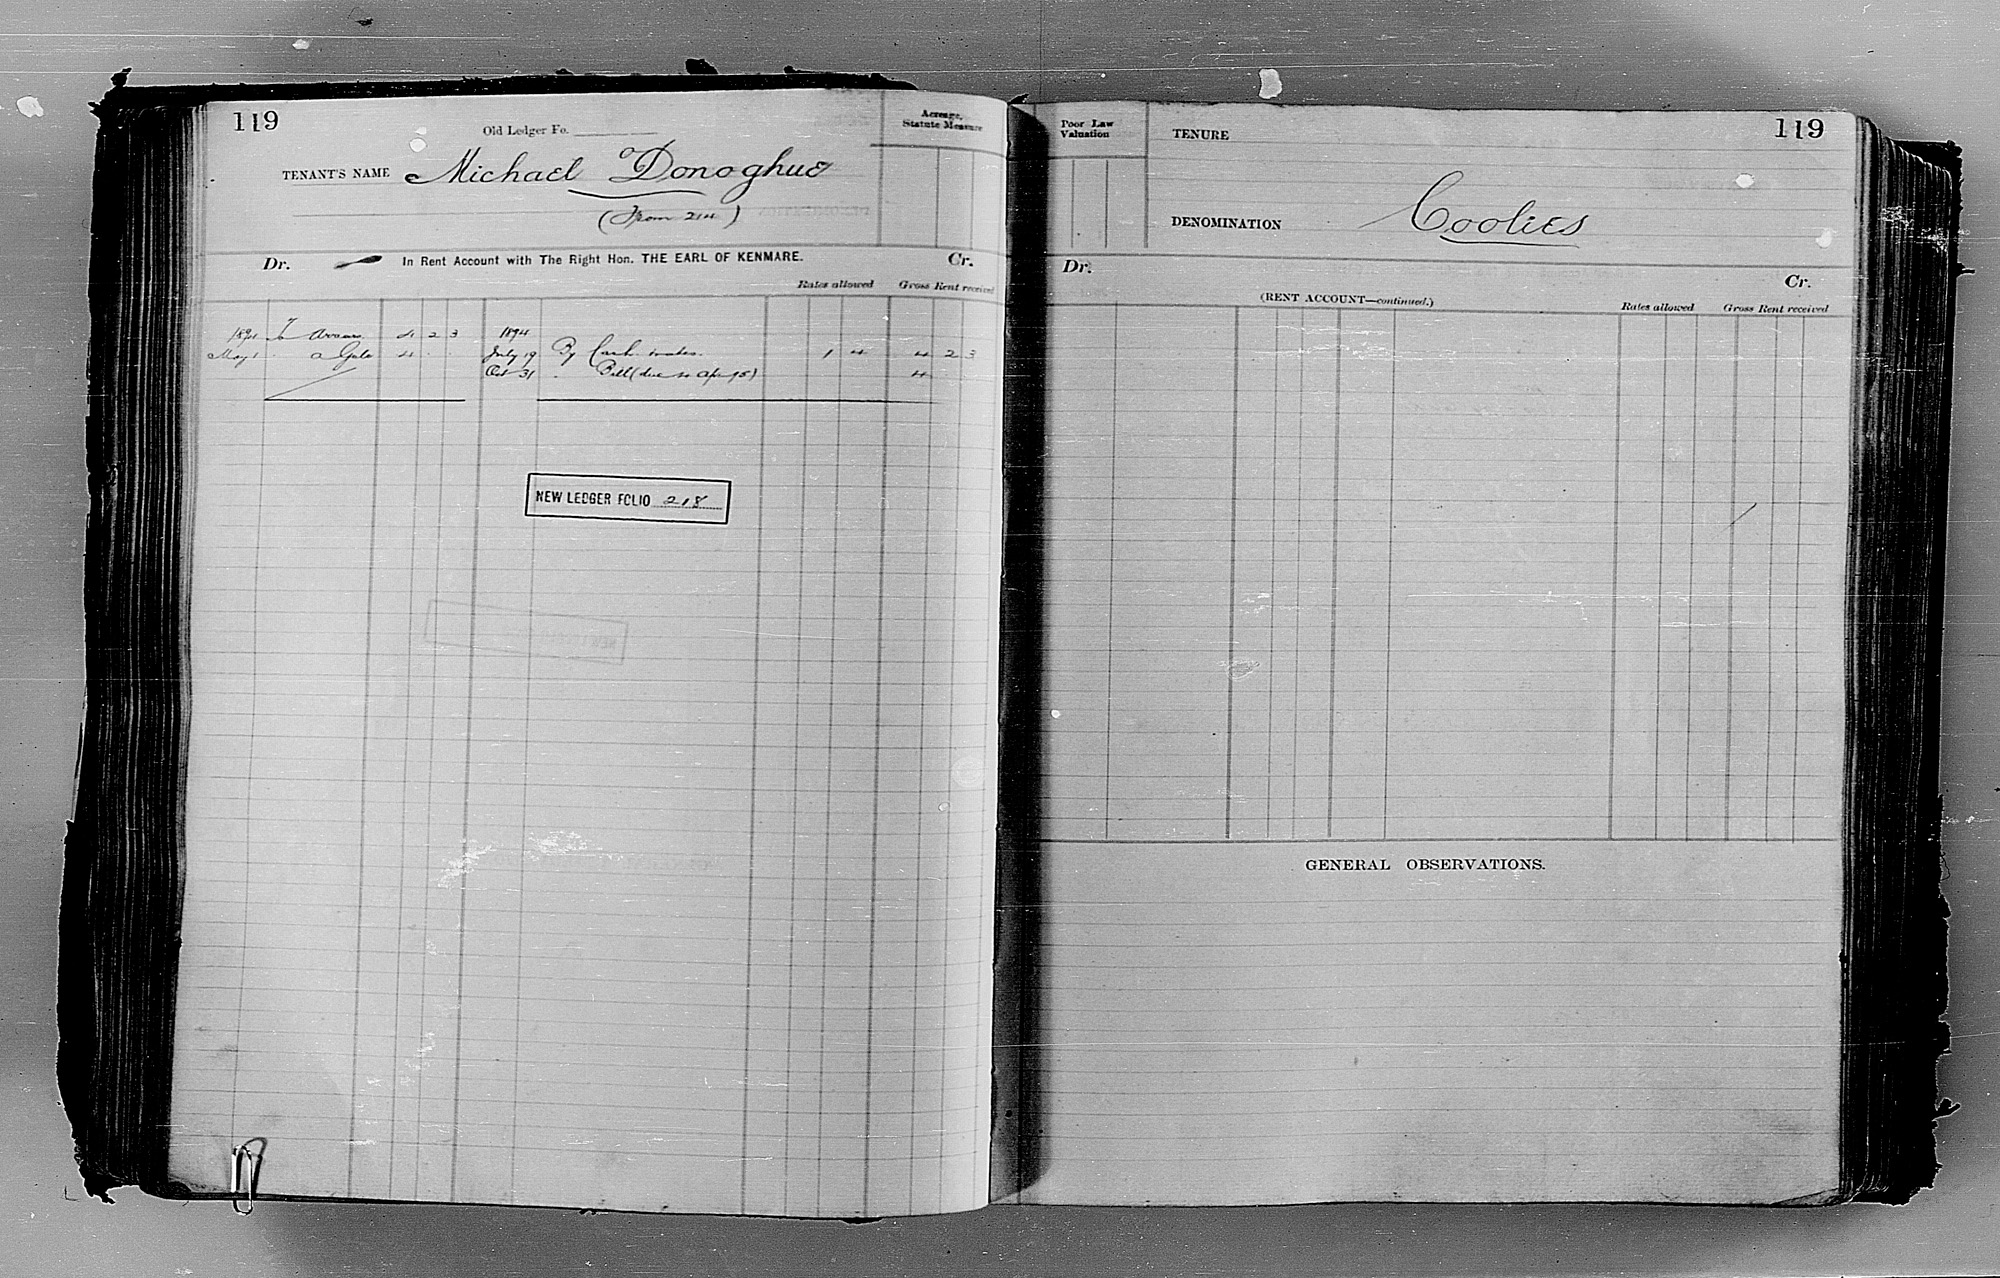 119
Old Ledger Fo.
TENANT'S NAME Michael O'Donoghue
(From 214)
Acreage, Statute Measure
Dr. In Rent Account with The Right Hon. THE EARL OF KENMARE. Cr.
Rates allowed Gross Rent received
1894 To Arrears 4 2 3 1894
May 1 " a Gale 4 " " July 19 By Cash & rates. 1 4 4 2 3
Oct 31 " Bill (due 4 Apr 95) 4
NEW LEDGER FOLIO 218
Poor Law Valuation
TENURE
119
DENOMINATION Coolies
Dr. Cr.
(RENT ACCOUNT—continued.)
Rates allowed Gross Rent received
GENERAL OBSERVATIONS.